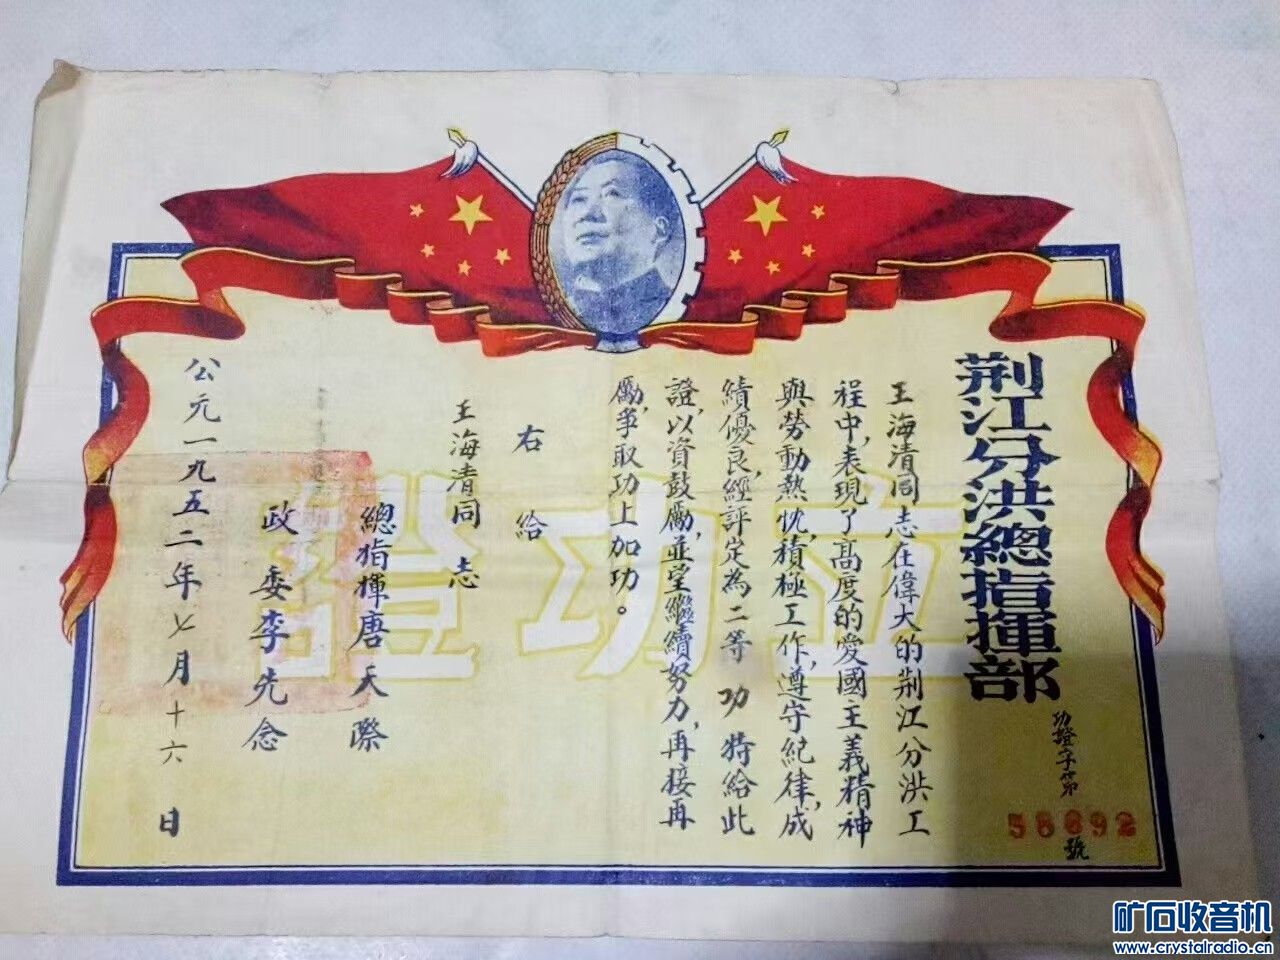 荆江分洪總指揮部
功證字第
56692
號
王海清同志在偉大的荆江分洪工
程中,表現了高度的愛國主義精神
與勞動熱忱,積極工作,遵守紀律,成
績優良,經評定為二等功特給此
證,以資鼓勵,並望繼續努力,再接再
勵,爭取功上加功。
右給
王海清同志
總指揮唐天際
政委李先念
公元一九五二年七月十六日
立功證
矿石收音机
www.crystalradio.cn